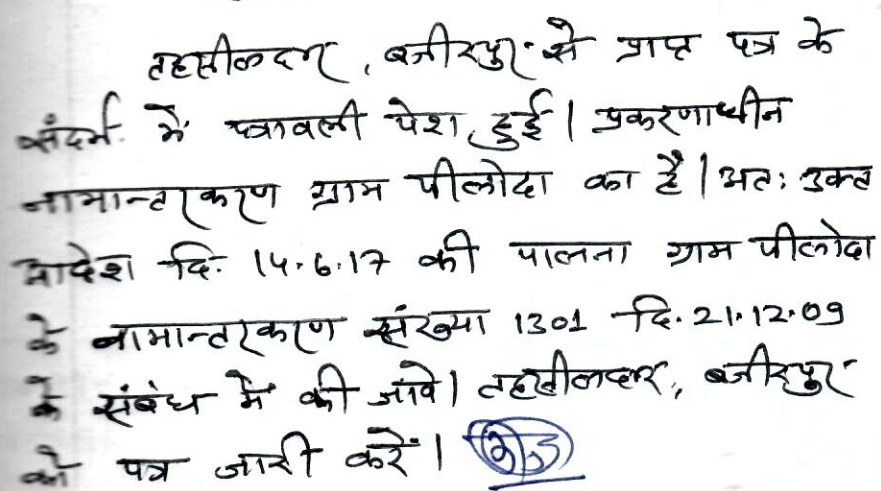 तहसीलदार, बजीरपुर से प्राप्त पत्र के
संदर्भ में पत्रावली पेश हुई। प्रकरणाधीन
नामान्तरकरण ग्राम पीलोदा का है। अतः उक्त
आदेश दि. 14.6.17 की पालना ग्राम पीलोदा
के नामान्तरकरण संख्या 1301 दि. 21.12.09
के संबंध में की जावे। तहसीलदार, बजीरपुर
को पत्र जारी करें।